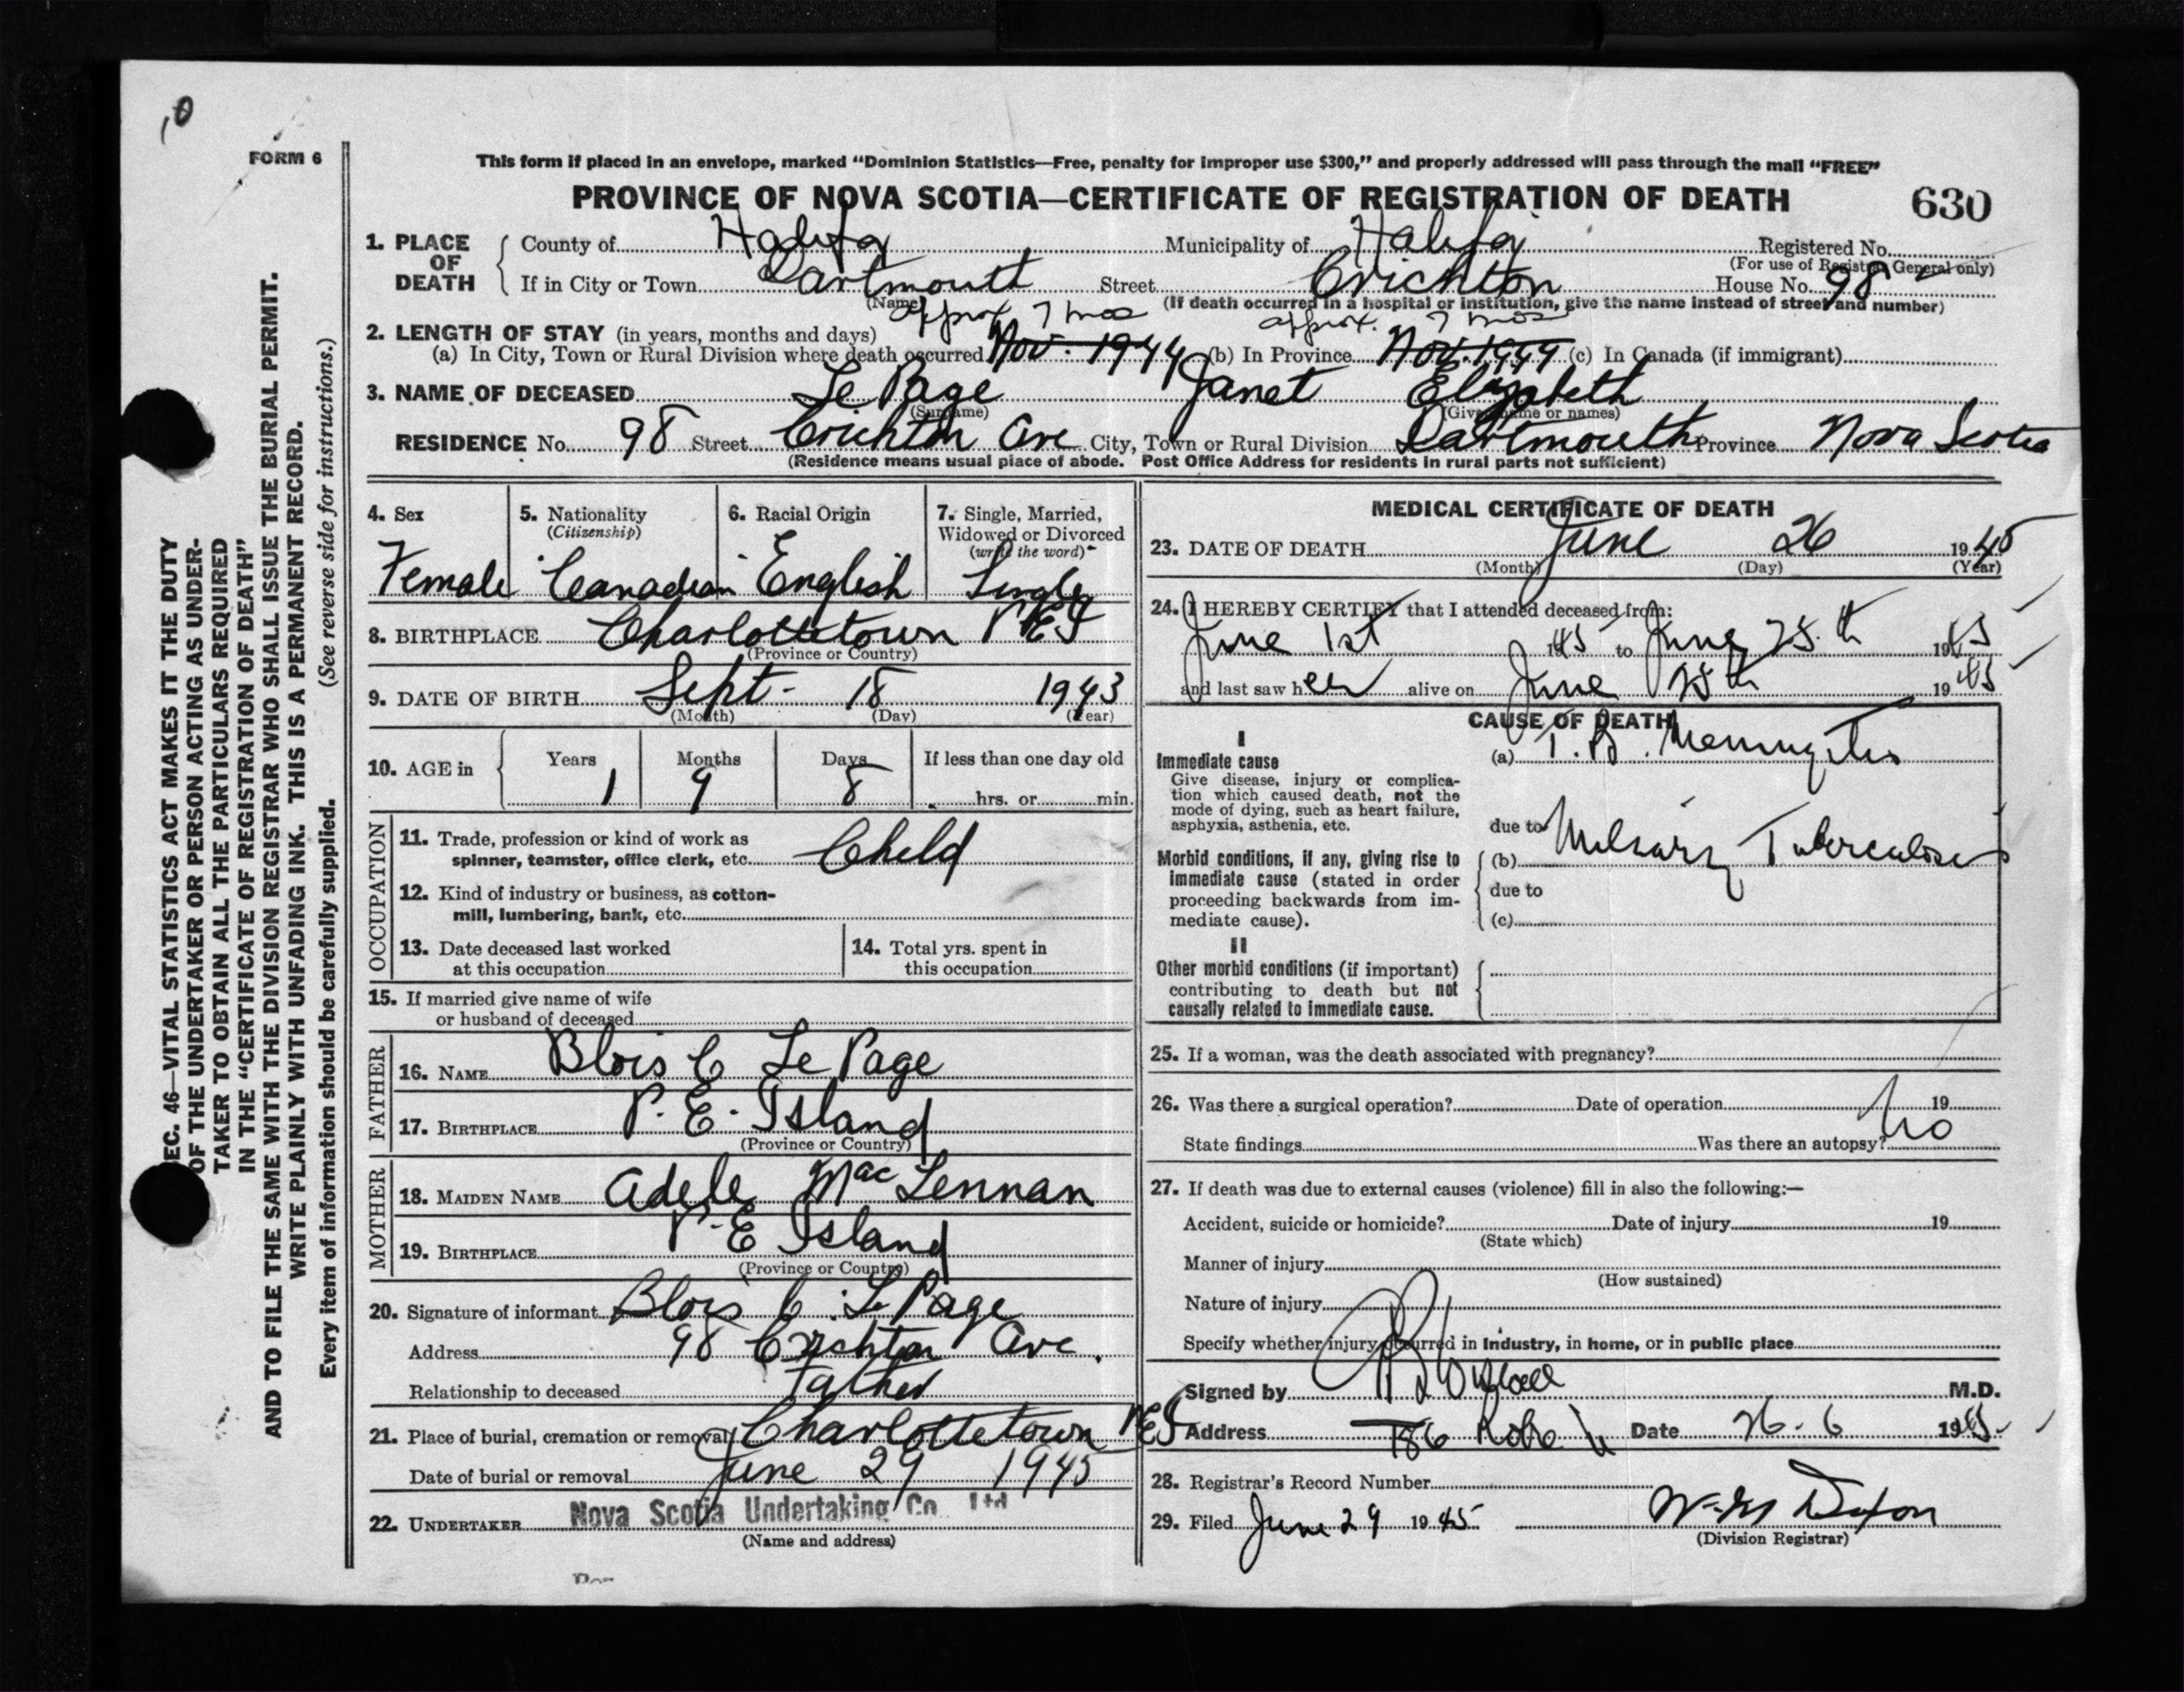 10
FORM 6
This form if placed in an envelope, marked “Dominion Statistics—Free, penalty for improper use $300,” and properly addressed will pass through the mail “FREE”
PROVINCE OF NOVA SCOTIA—CERTIFICATE OF REGISTRATION OF DEATH 630
1. PLACE OF DEATH County of Halifax Municipality of Halifax Registered No.
(For use of Registrar General only)
If in City or Town Dartmouth Street Crichton House No. 98
(Name) (If death occurred in a hospital or institution, give the name instead of street and number)
approx 7 mos approx. 7 mos
2. LENGTH OF STAY (in years, months and days)
(a) In City, Town or Rural Division where death occurred Nov. 1944 (b) In Province Nov. 1944 (c) In Canada (if immigrant)
3. NAME OF DECEASED Le Page Janet Elizabeth
(Surname) (Given name or names)
RESIDENCE No. 98 Street Crichton Ave City, Town or Rural Division Dartmouth Province Nova Scotia
(Residence means usual place of abode. Post Office Address for residents in rural parts not sufficient)
4. Sex 5. Nationality 6. Racial Origin 7. Single, Married,
(Citizenship) Widowed or Divorced
(write the word)
Female Canadian English Single
8. BIRTHPLACE Charlottetown PEI
(Province or Country)
9. DATE OF BIRTH Sept- 18 1943
(Month) (Day) (Year)
10. AGE in Years Months Days If less than one day old
1 9 8 hrs. or min.
OCCUPATION
11. Trade, profession or kind of work as
spinner, teamster, office clerk, etc. Child
12. Kind of industry or business, as cotton-
mill, lumbering, bank, etc.
13. Date deceased last worked 14. Total yrs. spent in
at this occupation this occupation
15. If married give name of wife
or husband of deceased
FATHER
16. NAME Blois C Le Page
17. BIRTHPLACE P. E. Island
(Province or Country)
MOTHER
18. MAIDEN NAME Adele MacLennan
19. BIRTHPLACE P-E Island
(Province or Country)
20. Signature of informant Blois C. Le Page
Address 98 Crichton Ave.
Relationship to deceased Father
21. Place of burial, cremation or removal Charlottetown PEI
Date of burial or removal June 29 1945
22. UNDERTAKER Nova Scotia Undertaking Co. Ltd
(Name and address)
MEDICAL CERTIFICATE OF DEATH
23. DATE OF DEATH June 26 1945
(Month) (Day) (Year)
24. I HEREBY CERTIFY that I attended deceased from:
June 1st 1945 to June 25th 1945
and last saw her alive on June 25th 1945
CAUSE OF DEATH
I
Immediate cause (a) T.B. Meningitis
Give disease, injury or complica-
tion which caused death, not the
mode of dying, such as heart failure,
asphyxia, asthenia, etc. due to
Morbid conditions, if any, giving rise to (b) Miliary Tuberculosis
immediate cause (stated in order due to
proceeding backwards from im-
mediate cause). (c)
II
Other morbid conditions (if important)
contributing to death but not
causally related to immediate cause.
25. If a woman, was the death associated with pregnancy?
26. Was there a surgical operation? Date of operation 19
State findings Was there an autopsy? No
27. If death was due to external causes (violence) fill in also the following:—
Accident, suicide or homicide? Date of injury 19
(State which)
Manner of injury
(How sustained)
Nature of injury
Specify whether injury occurred in industry, in home, or in public place
Signed by M.D.
Address Date 26-6 1945
28. Registrar's Record Number
29. Filed June 29 1945 Dixon
(Division Registrar)
SEC. 46—VITAL STATISTICS ACT MAKES IT THE DUTY
OF THE UNDERTAKER OR PERSON ACTING AS UNDER-
TAKER TO OBTAIN ALL THE PARTICULARS REQUIRED
IN THE “CERTIFICATE OF REGISTRATION OF DEATH”
AND TO FILE THE SAME WITH THE DIVISION REGISTRAR WHO SHALL ISSUE THE BURIAL PERMIT.
WRITE PLAINLY WITH UNFADING INK. THIS IS A PERMANENT RECORD.
Every item of information should be carefully supplied. (See reverse side for instructions.)